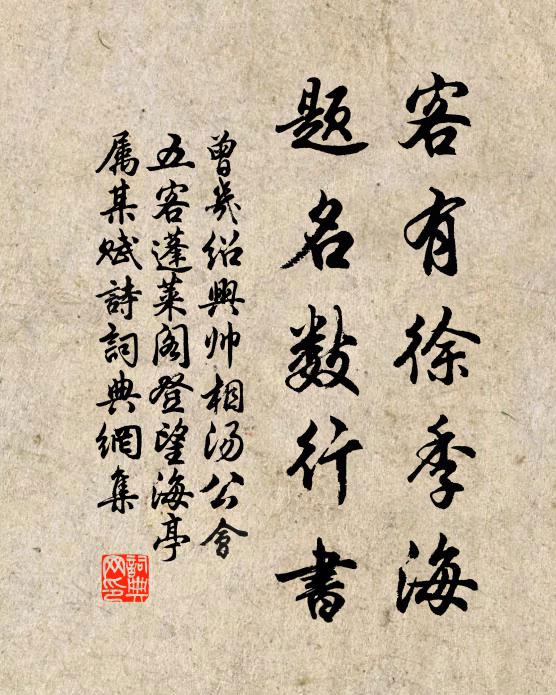 客有徐季海
题名数行書
曾幾绍興帅相汤公會
五客蓬莱阁登望海亭
属某赋詩詞典網集
詞典网印